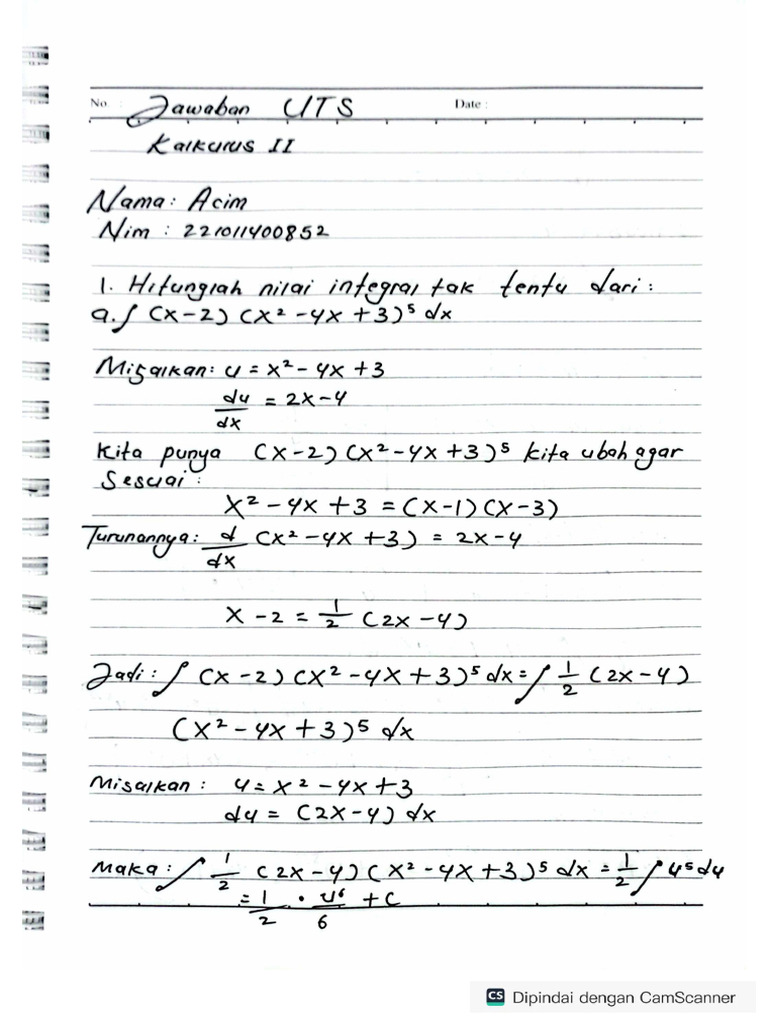 No. : Jawaban UTS Date :
Kalkulus II
Nama : Acim
Nim : 221011400852
1. Hitunglah nilai integral tak tentu dari :
a. ∫ (x-2) (x² -4x +3)⁵ dx
Misalkan: u = x² - 4x +3
du/dx = 2x-4
Kita punya (x-2) (x² -4x +3)⁵ kita ubah agar
Sesuai :
x² -4x +3 = (x-1) (x-3)
Turunannya: d/dx (x² -4x +3) = 2x -4
x -2 = 1/2 (2x -4)
Jadi : ∫ (x -2) (x² -4x +3)⁵ dx = ∫ 1/2 (2x -4)
(x² -4x +3)⁵ dx
Misalkan : u = x² -4x +3
du = (2x-4) dx
Maka : ∫ 1/2 (2x-4) (x² -4x +3)⁵ dx = 1/2 ∫ u⁵ du
= 1/2 · u⁶/6 + C
CS Dipindai dengan CamScanner